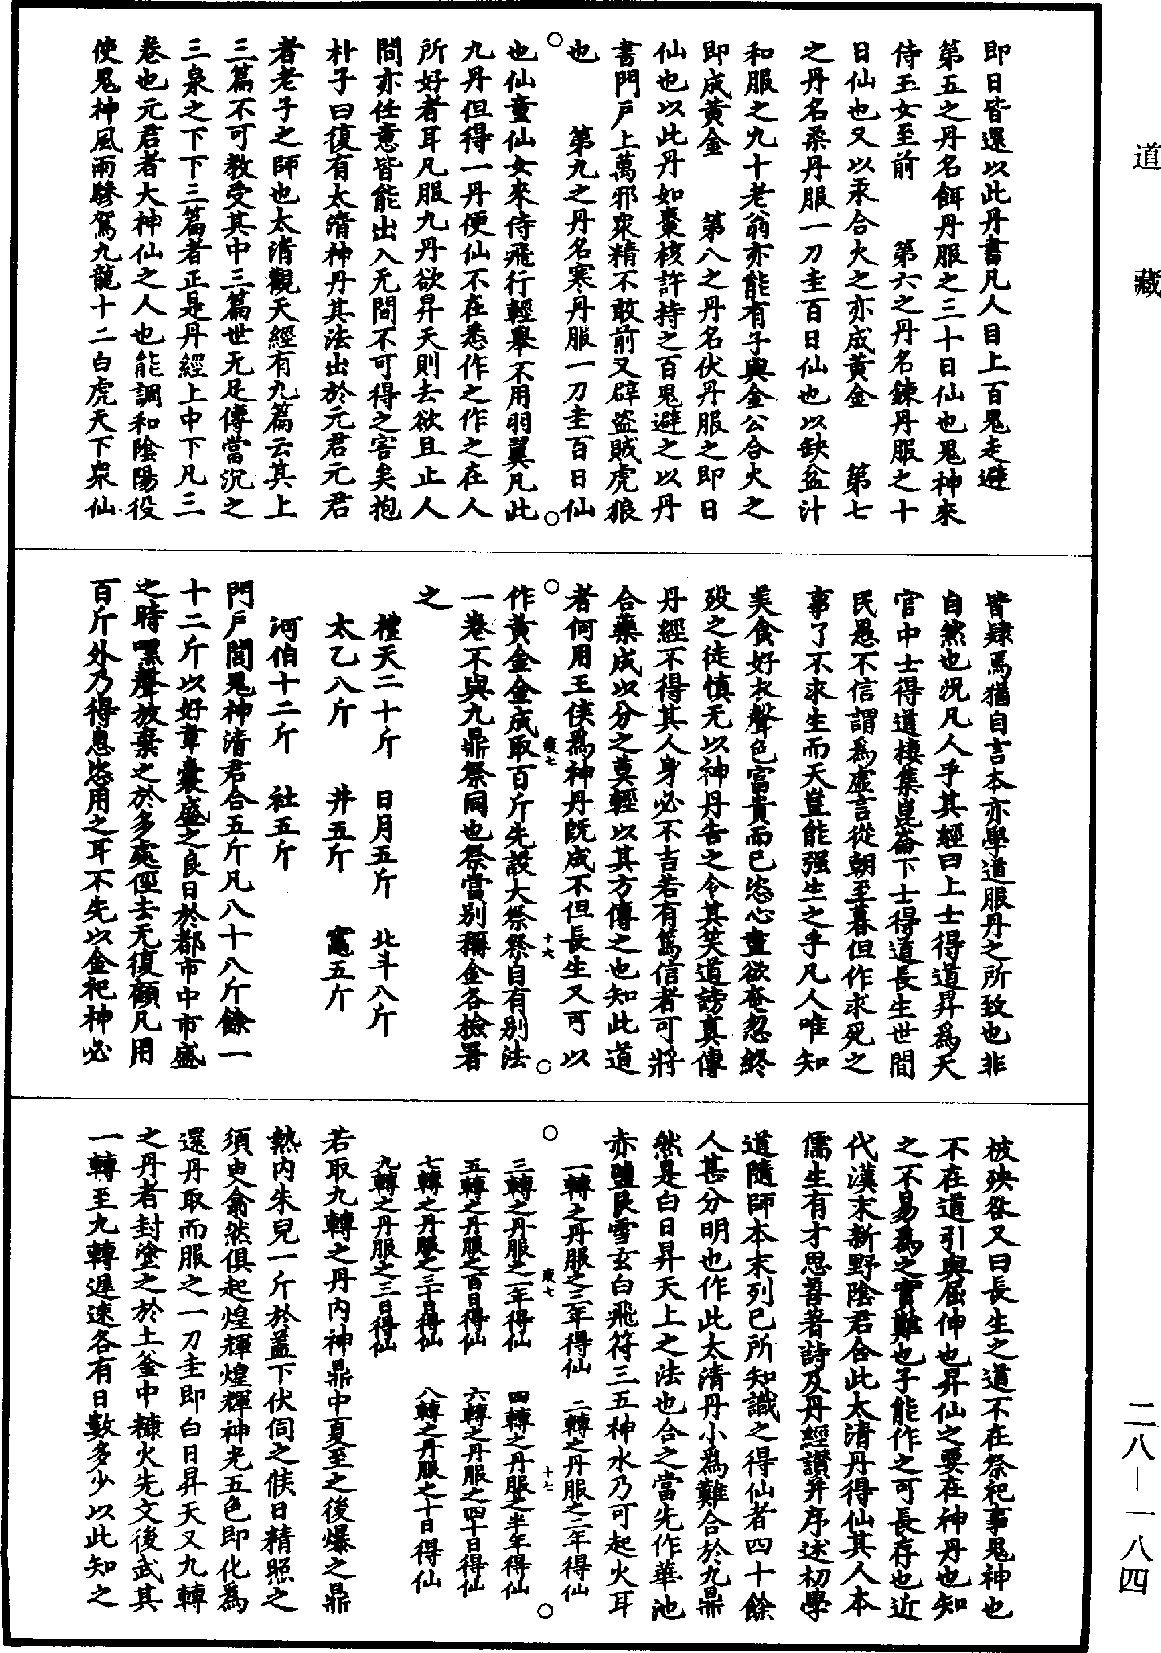 道藏
即日皆還以此丹書凡人目上百鬼走避
第五之丹名餌丹服之三十日仙也鬼神來
侍玉女至前　第六之丹名鍊丹服之十
日仙也又以汞合火之亦成黃金　第七
之丹名柔丹服一刀圭百日仙也以缺盆汁
和服之九十老翁亦能有子與金公合火之
即成黃金　第八之丹名伏丹服之即日
仙也以此丹如棗核許持之百鬼避之以丹
書門戶上萬邪衆精不敢前又辟盜賊虎狼
也　第九之丹名寒丹服一刀圭百日仙
也仙童仙女來侍飛行輕舉不用羽翼凡此
九丹但得一丹便仙不在悉作之作之在人
所好者耳凡服九丹欲昇天則去欲且止人
間亦任意皆能出入无間不可得之害矣抱
朴子曰復有太清神丹其法出於元君元君
者老子之師也太清觀天經有九篇云其上
三篇不可教受其中三篇世无足傳當沉之
三泉之下下三篇者正是丹經上中下凡三
卷也元君者大神仙之人也能調和陰陽役
使鬼神風雨驂駕九龍十二白虎天下衆仙
皆隸焉猶自言本亦學道服丹之所致也非
自然也況凡人乎其經曰上士得道昇爲天
官中士得道棲集崑崙下士得道長生世間
民愚不信謂爲虛言從朝至暮但作求死之
事了不求生而天豈能强生之乎凡人唯知
美食好衣聲色富貴而已恣心盡欲奄忽終
歿之徒慎无以神丹告之令其笑道謗真傳
丹經不得其人身必不吉若有篤信者可將
合藥成以分之莫輕以其方傳之也知此道
者何用王侯爲神丹既成不但長生又可以
作黃金金成取百斤先設大祭祭自有別法
一卷不與九鼎祭同也祭當別稱金各檢署
之
禮天二十斤　日月五斤　北斗八斤
太乙八斤　井五斤　竈五斤
河伯十二斤　社五斤
門戶閭鬼神清君合五斤凡八十八斤餘一
十二斤以好韋囊盛之良日於都市中市盛
之時嘿聲放棄之於多處徑去无復顧凡用
百斤外乃得恣用之耳不先以金祀神必
被殃咎又曰長生之道不在祭祀事鬼神也
不在道引與屈伸也昇仙之要在神丹也知
之不易爲之實難也子能作之可長存也近
代漢末新野陰君合此太清丹得仙其人本
儒生有才思善著詩及丹經讚并序述初學
道隨師本末列已所知識之得仙者四十餘
人甚分明也作此太清丹小爲難合於九鼎
然是白日昇天上之法也合之當先作華池
赤鹽艮雪玄白飛符三五神水乃可起火耳
一轉之丹服之三年得仙　二轉之丹服之二年得仙
三轉之丹服之一年得仙　四轉之丹服之半年得仙
五轉之丹服之百日得仙　六轉之丹服之四十日得仙
七轉之丹服之三十日得仙　八轉之丹服之十日得仙
九轉之丹服之三日得仙
若取九轉之丹內神鼎中夏至之後爆之鼎
熱內朱兒一斤於蓋下伏伺之候日精照之
須臾翕然俱起煌輝煌輝神光五色即化爲
還丹取而服之一刀圭即白日昇天又九轉
之丹者封塗之於土釜中糠火先文後武其
一轉至九轉遲速各有日數多少以此知之
二八—一八四